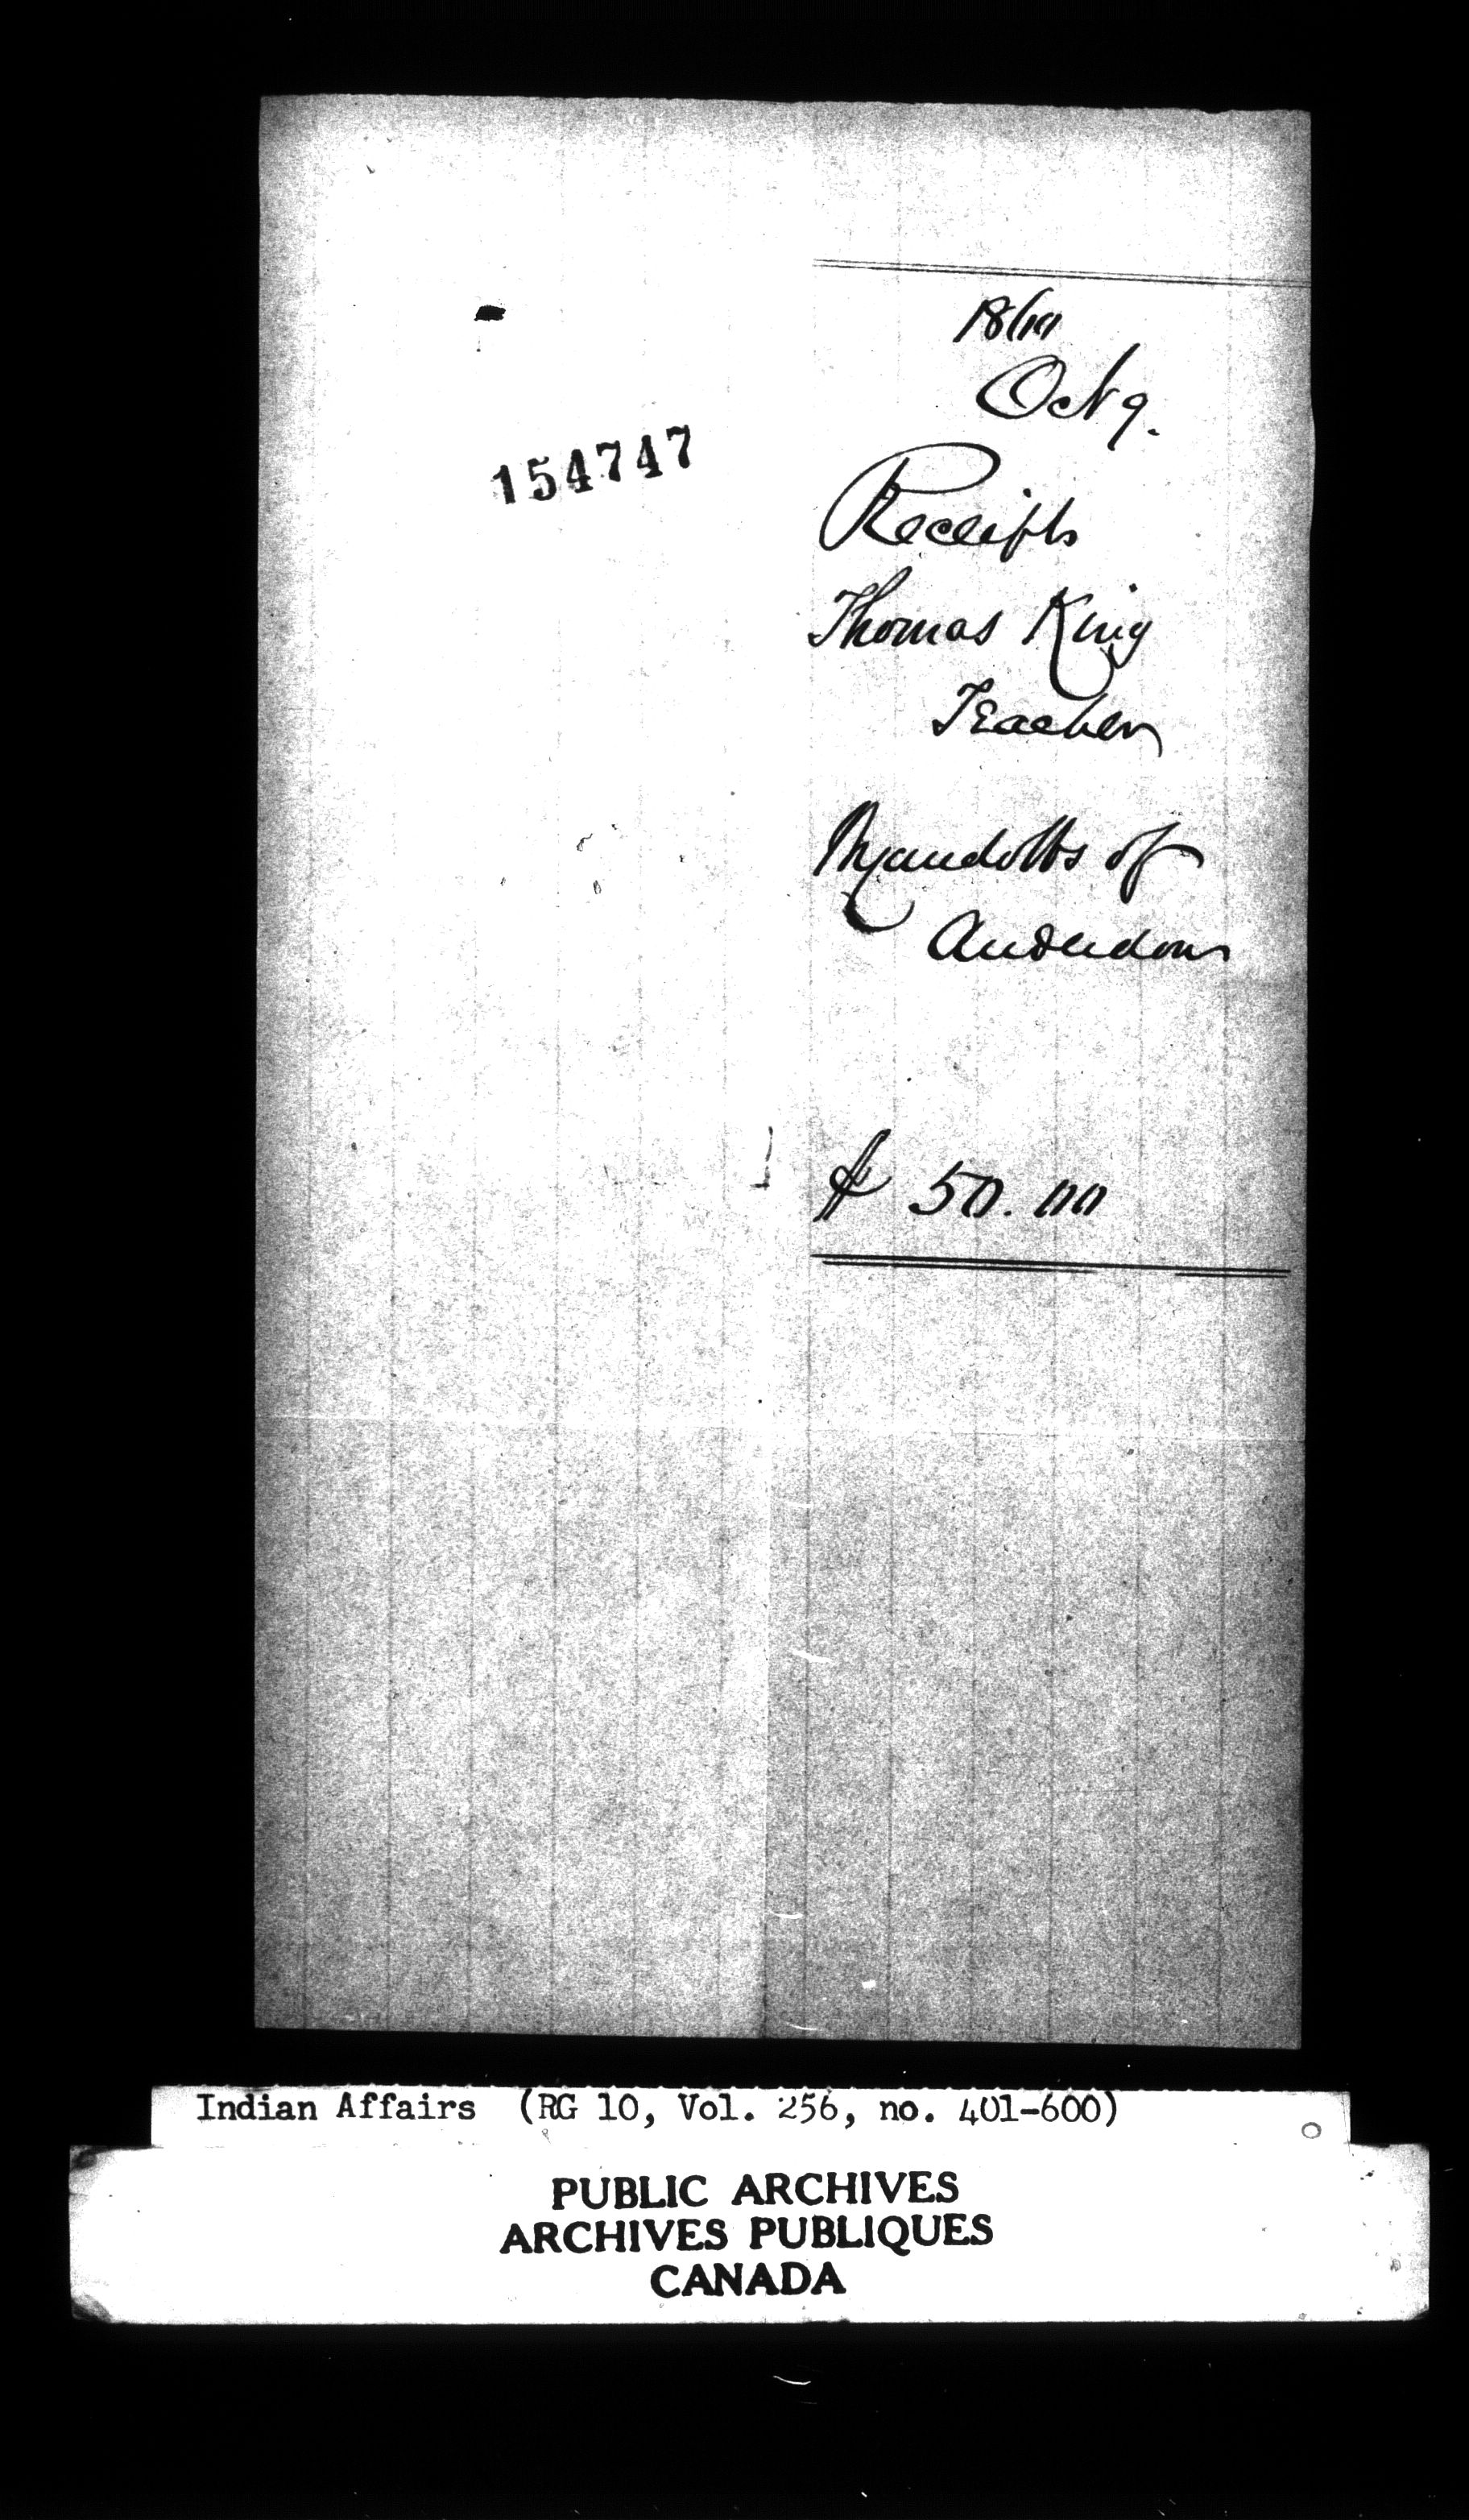 154747
1860
Oct 9.
Receipts
Thomas King
Teacher
Wyandotts of
Anderdon
$ 50.00
Indian Affairs (RG 10, Vol. 256, no. 401-600)
PUBLIC ARCHIVES
ARCHIVES PUBLIQUES
CANADA